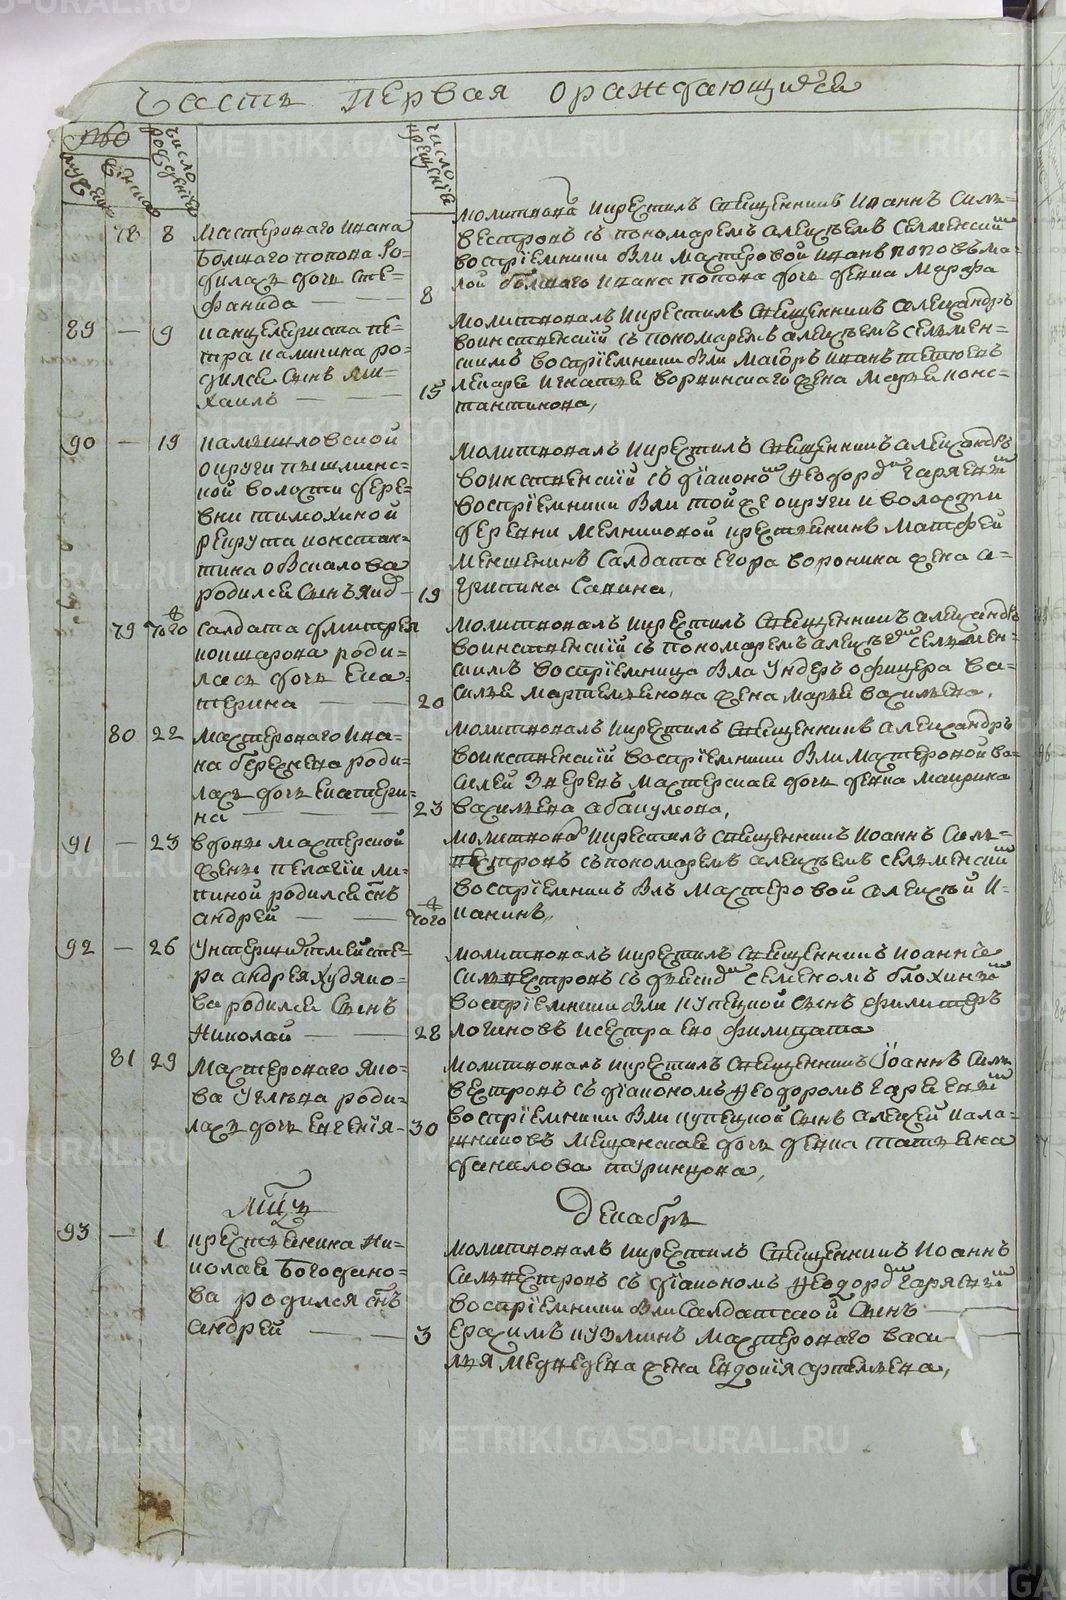 Часть первая ораждающихся
число рождений
число крещений
78 8 Мастероваго Ивана
Болшаго попова Ро-
дилась дочь Сте-
фанида
8
молитвова и крестилъ Священникъ Иоаннъ Силь-
вестровъ съ пономаремъ Алексѣемъ Селменским
воспрiемники были мастеровой Иванъ поповъ ма-
лой болшаго Ивана попова дочь девка Марфа
89 — 9 канцеляриста пе-
тра калинина ро-
дился сынъ Ми-
хаилъ
15
молитвовалъ и крестилъ Священникъ Александръ
воинственскiй съ пономаремъ Алексѣемъ Селмен-
скимъ воспрiемники были маiоръ Иванъ
лекаря Игнатья жена Марья конс-
тантинова,
90 — 19 камышловской
округи пышминс-
кой волости дере-
вни тимохиной
рекрута констан-
тина
родился сынъ
19
молитвовалъ и крестилъ Священникъ Александръ
воинственскiй съ дiакономъ Феодором
воспрiемники были той же округи и волости
деревни мелниковой крестьянинъ Матфей
меншенинъ Салдата Егора воронина жена а-
грипина Савина,
79 того Салдата дмитрея
кокшарова роди-
лась дочь Ека-
терина
20
молитвовалъ и крестилъ Священникъ Александръ
воинственскiй съ пономаремъ Алексѣем Селмен-
скимъ воспрiемница была Ундеръ офицера ва-
силья мартемьянова жена марья васильева,
80 22 мастероваго Ива-
на бережнева роди-
лась дочь Екатери-
на
23
молитвовалъ и крестилъ Священникъ Александръ
воинственскiй воспрiемники были мастеровой ва-
силей Зверевъ мастерская дочь девка маврика
васильева абакумова,
91 — 23 вдовы мастерской
жены пелагiи ли-
пиной родился сынъ
андрей
того
молитвова и крестилъ Священникъ Иоаннъ Силь-
вестровъ съ пономаремъ Алексѣемъ Селменским
воспрiемникъ былъ мастеровой Алексѣй И-
канинъ,
92 — 26 Унтершихтмейсте-
ра андрея худяко-
ва родился сынъ
Николай
28
молитвовалъ и крестилъ Священникъ Иоаннъ
Сильвестровъ съ Семеномъ блохиным
воспрiемники были купецкой сынъ
логиновъ и сестра ево филицата
81 29 Мастероваго Яко-
ва Углева роди-
лась дочь Евгенiя
30
молитвовалъ и крестилъ Священникъ Iоаннъ Силь
вестровъ съ дiакономъ Феодоромъ
воспрiемники были купецкой сынъ Алексей кала-
шниковъ мещанская дочь девка татьяна
данилова туринцова,
мцъ Декабрь
93 — 1 крестьянина Ни-
колая Богодано-
ва родился сынъ
андрей
3
молитвовалъ и крестилъ Священникъ Иоаннъ
Сильвестровъ съ дiакономъ Феодором
воспрiемники были Салдатской сынъ
Ерахимъ кузминъ мастероваго васи-
лья медведева жена Евдокiя артемьева,